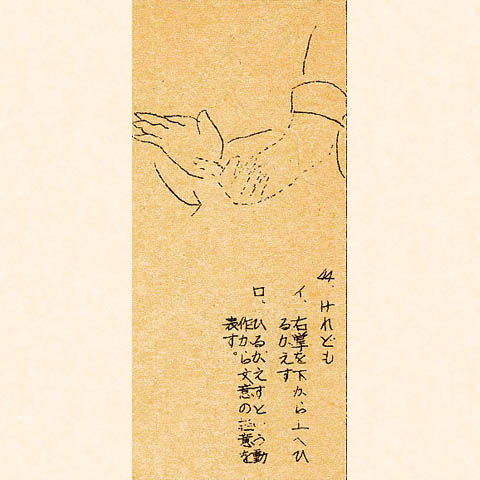 44. けれども
イ、右掌を下から上へひ
るがえす
ロ、ひるがえすという動
作から文意の 意を
表す。